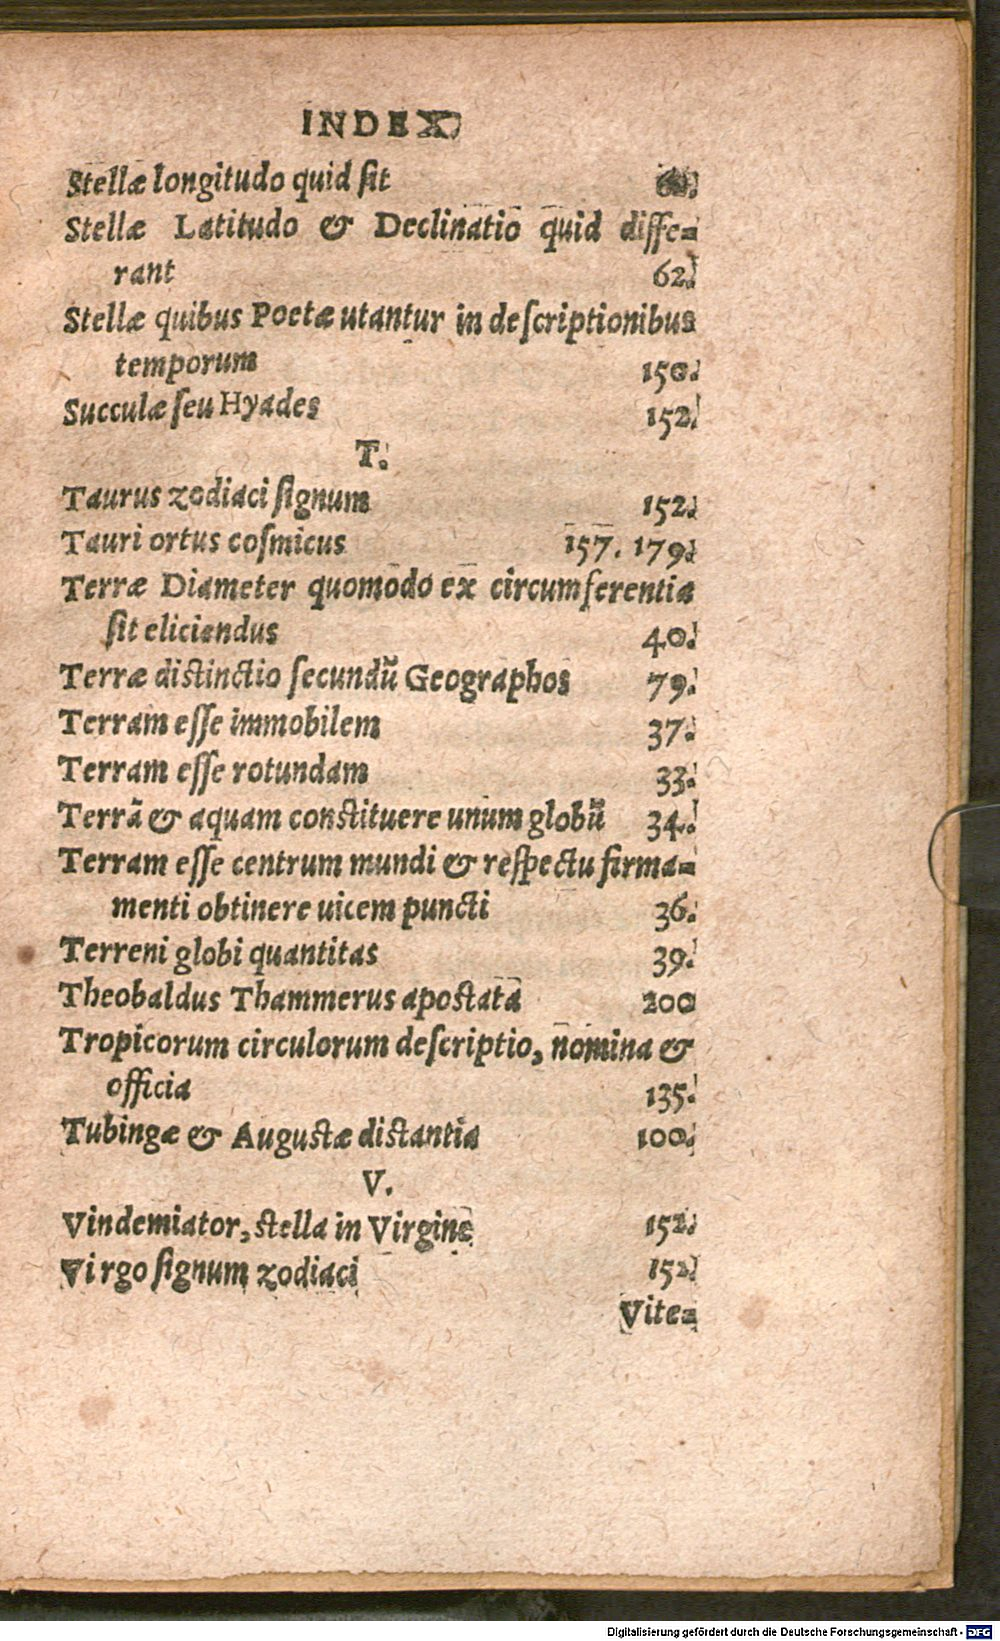 INDEX
Stellæ longitudo quid ſit
Stellæ Latitudo & Declinatio quid diffe=
rant 62.
Stellæ quibus Poetæ utantur in deſcriptionibus
temporum 150.
Succulæ ſeu Hyades 152.
T.
Taurus zodiaci ſignum 152.
Tauri ortus coſmicus 157. 179.
Terræ Diameter quomodo ex circumferentia
ſit eliciendus 40.
Terræ distinctio ſecundũ Geographos 79.
Terram eſſe immobilem 37.
Terram eſſe rotundam 33.
Terrã & aquam constituere unum globũ 34.
Terram eſſe centrum mundi & reſpectu firma=
menti obtinere uicem puncti 36.
Terreni globi quantitas 39.
Theobaldus Thammerus apostata 200
Tropicorum circulorum deſcriptio, nomina &
officia 135.
Tubingæ & Augustæ distantia 100.
V.
Vindemiator, stella in Virgine 152.
Virgo ſignum zodiaci 152.
Vite=
Digitalisierung gefördert durch die Deutsche Forschungsgemeinschaft - DFG